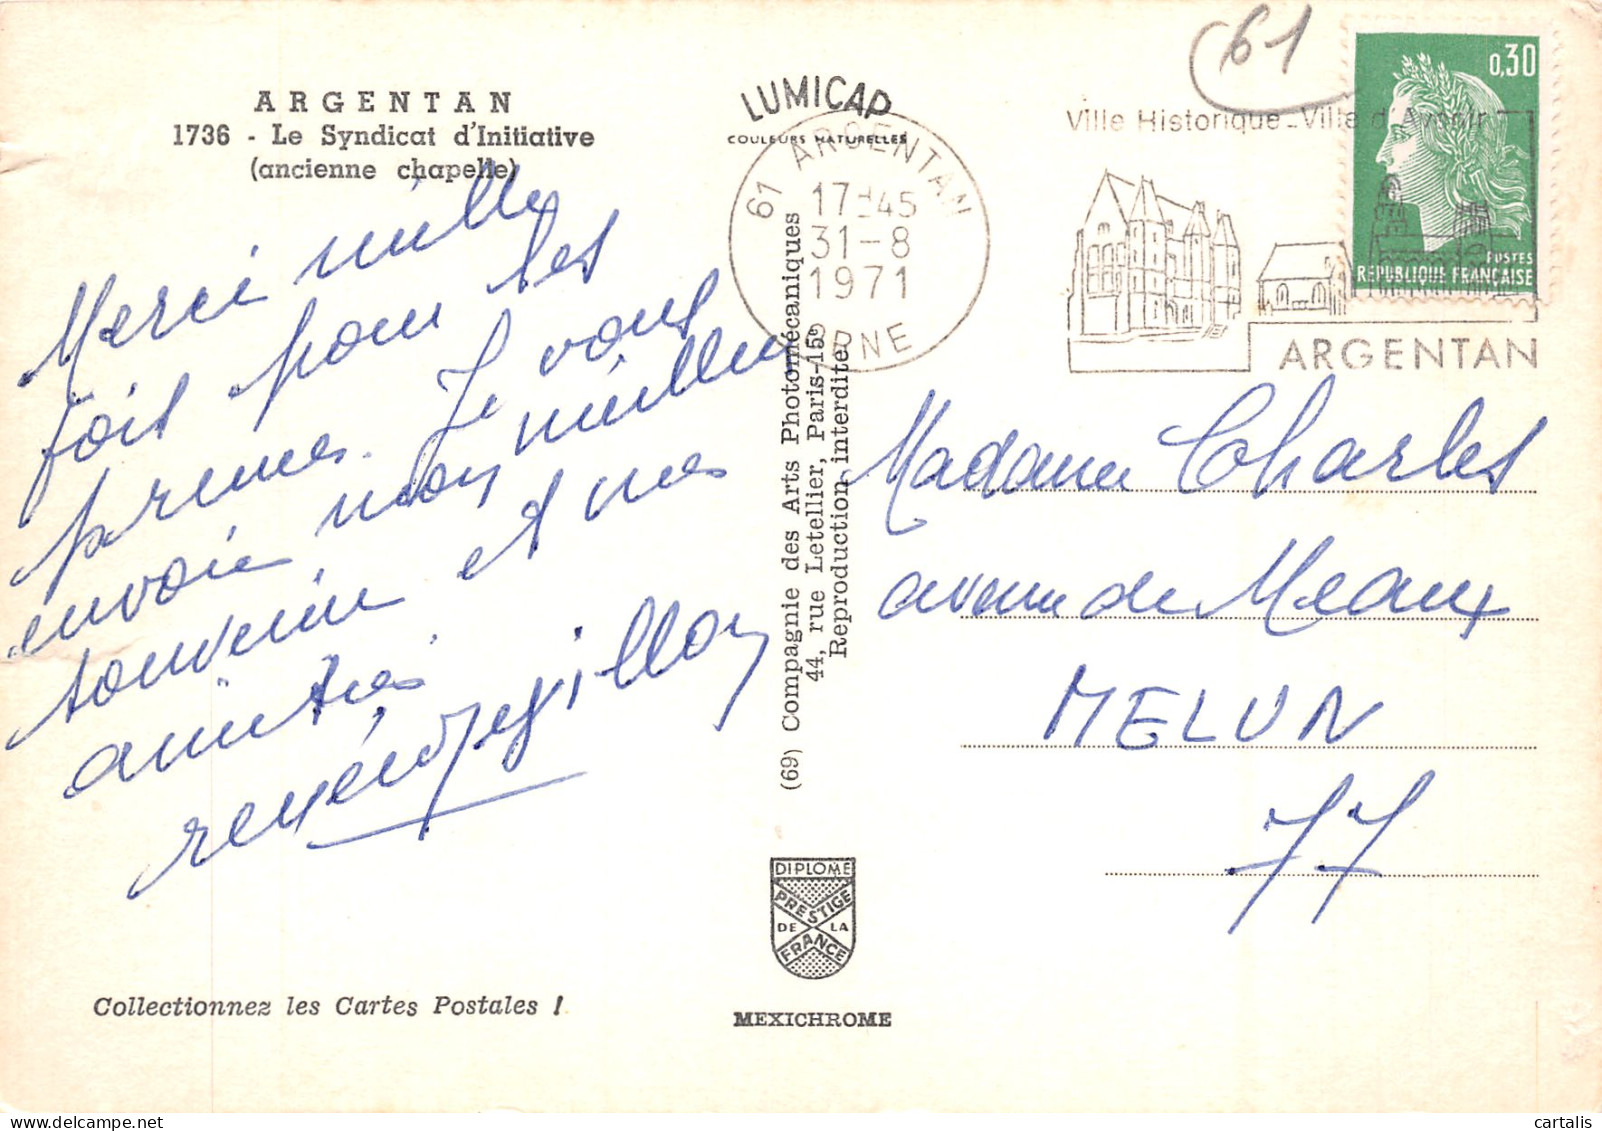 61
ARGENTAN
1736 - Le Syndicat d'Initiative
(ancienne chapelle)
LUMICAP
COULEURS NATURELLES
61 ARGENTAN
17H45
31-8
1971
ORNE
Ville Historique - Ville d'Avenir
ARGENTAN
0,30
POSTES
REPUBLIQUE FRANÇAISE
Merci mille
fois pour les
prunes. Je vous
envoie mon meilleur
souvenir et mes
amitiés
(69) Compagnie des Arts Photomécaniques
44, rue Letellier, Paris-15e
Reproduction interdite
Madame Charles
avenue de Meaux
MELUN
77
DIPLOME
PRESTIGE
DE LA
FRANCE
Collectionnez les Cartes Postales !
MEXICHROME
cartalis